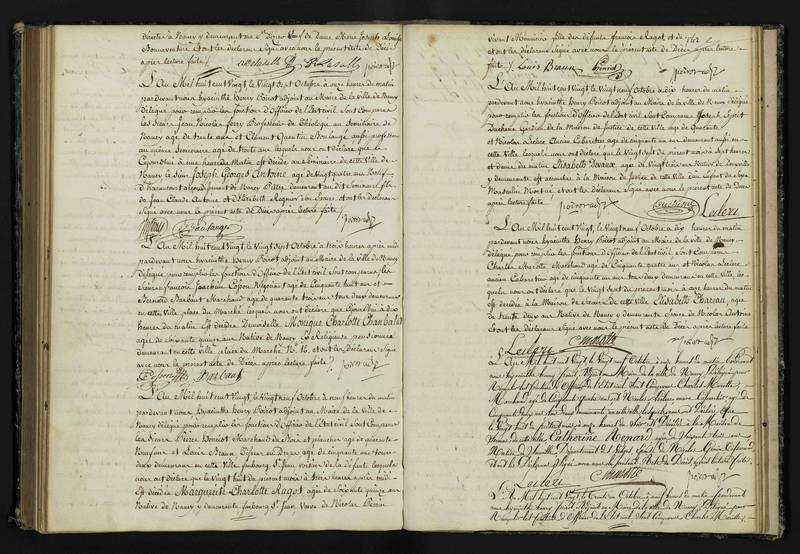 domicilié à Nancy y demeurant au
Bonneventure Et ont les déclarans Signé avec nous le présent acte de Décès
après lecture faite
L'An Mil huit cent Vingt, le Vingt Sept Octobre à onze heures du matin
pardevant nous hyacinthe Henry Poirot adjoint au Maire de la ville de Nancy
Délégué pour remplir les fonctions d'Officier de l'Etat civil Sont Comparus
les Sieurs Jean Nicolas Ferry Professeur de Théologie au Séminaire de
Nancy agé de trente ans et Clément Quentin Boulangé aussi professeur
au même Séminaire agé de trente ans lesquels nous ont déclaré que le
à une heure du Matin est décédé au Séminaire de cette Ville de
Nancy le Sieur Joseph Georges Antoine agé de Vingt quatre ans Natif
d'haraucourt arrondissement de Nancy demeurant au dit Séminaire fils
de Jean Claude Antoine et d'Elisabeth Son Epouse, et ont les déclarans
Signé avec nous le présent acte de Décès après lecture faite
Boulangé
L'An Mil huit cent Vingt, le Vingt Sept Octobre à trois heures après midi
pardevant nous hyacinthe Henry Poirot adjoint au Maire de la ville de Nancy
Délégué pour remplir les fonctions d'Officier de l'Etat civil Sont comparus les
Sieurs François Joachim Négociant agé de Cinquante huit ans et
Marchand agé de quarante trois ans tous deux demeurant
en cette Ville place du Marché lesquels nous ont déclaré que aujourd'hui à dix
heures du matin Est décédée Demoiselle Monique Charlotte Chanbalat
agée de cinquante ans Native de Nancy Ex Religieuse pensionnée
demeurant en cette ville place du Marché No. et ont les déclarans Signé
avec nous le présent acte de Décès après lecture faite
L'An Mil huit cent Vingt le Vingt neuf Octobre à neuf heures du matin
pardevant nous hyacinthe Henry Poirot adjoint au Maire de la Ville de
Nancy délégué pour remplir les fonctions d'Officier de l'Etat civil Sont Comparus
les Sieurs Pierre Henriot Marchand de Bois et plancher agé de quarante
ans et Louis Braun agé de cinquante ans tous
deux demeurant en cette Ville faubourg St Jean voisins de la défunte lesquels
nous ont déclaré que le Vingt huit du présent mois à trois heures après midi
Est décédée Marguerite Charlotte Ragot agée de Soixante quinze ans
Native de Nancy y demeurante faubourg St Jean Veuve de Nicolas
vivant fille des défunts françois Ragot et de
et ont les déclarans Signé avec nous le présent acte de Décès après lecture
faite Louis Braun henriot
L'An Mil huit cent Vingt le Vingt neuf Octobre à dix heures du matin
pardevant nous hyacinthe Henry Poirot adjoint au Maire de la Ville de Nancy délégué
pour remplir les fonctions d'Officier de l'Etat civil Sont Comparus Joseph
Duchêne Gardien de la Maison de Justice de cette Ville agé de Quarante
et Nicolas Leclerc Ancien Cabaretier agé de cinquante un ans demeurant aussi en
cette Ville, lesquels nous ont déclaré que le Vingt Sept du présent mois à Sept heures
et demie du matin Elisabeth agée de Vingt Six ans Native de
y demeurante est accouchée à la Maison de Justice de cette Ville d'un Enfant du Sexe
Masculin Mort né et ont les déclarans Signé avec nous le présent acte de Décès
après lecture faite
Leclerc
L'An Mil huit cent Vingt, le Vingt neuf Octobre à dix heures du matin
pardevant nous hyacinthe Henry Poirot adjoint au Maire de la Ville de Nancy
délégué pour remplir les fonctions d'Officier de l'Etat civil Sont Comparus
Charles Marotte Marchand agé de Cinquante quatre ans et Nicolas Leclerc
ancien Cabaretier agé de cinquante un ans tous deux demeurans en cette Ville, les
quels nous ont déclaré que le Vingt Sept du présent mois à une heure du matin
est décédée à la Maison de Secours de cette Ville Elisabeth Chareau, agée
de trente deux ans Native de Nancy y demeurante Epouse de Nicolas Antoine
et ont les déclarans Signé avec nous le présent acte de Décès après lecture faite
Leclerc C marotte
L'An Mil huit cent Vingt le Vingt neuf Octobre à dix heures du matin Pardevant
nous hyacinthe henry Poirot Adjoint au Maire de la Ville de Nancy Délégué pour
Remplir les fonctions d'Officier de l'Etat civil Sont Comparus Charles Marotte
Marchand agé de Cinquante quatre ans et Nicolas Leclerc ancien Cabaretier agé de
Cinquante un ans tous deux demeurans en cette Ville lesquels nous ont Déclaré Que
le Vingt huit du présent mois à heures du Soir est Décédée à la Maison de
Secours de cette Ville Catherine Menard agée de Vingt trois ans
Native de Département des Vosges Epouse de Nicolas
et ont les Déclarans Signé avec nous le présent Acte de Décès après lecture faite
Leclerc C marotte
L'An Mil huit cent Vingt le Trente un Octobre à onze heures du matin Pardevant
nous hyacinthe henry Poirot Adjoint au Maire de la Ville de Nancy Délégué pour
Remplir les fonctions d'Officier de l'Etat civil Sont Comparus Charles Marotte